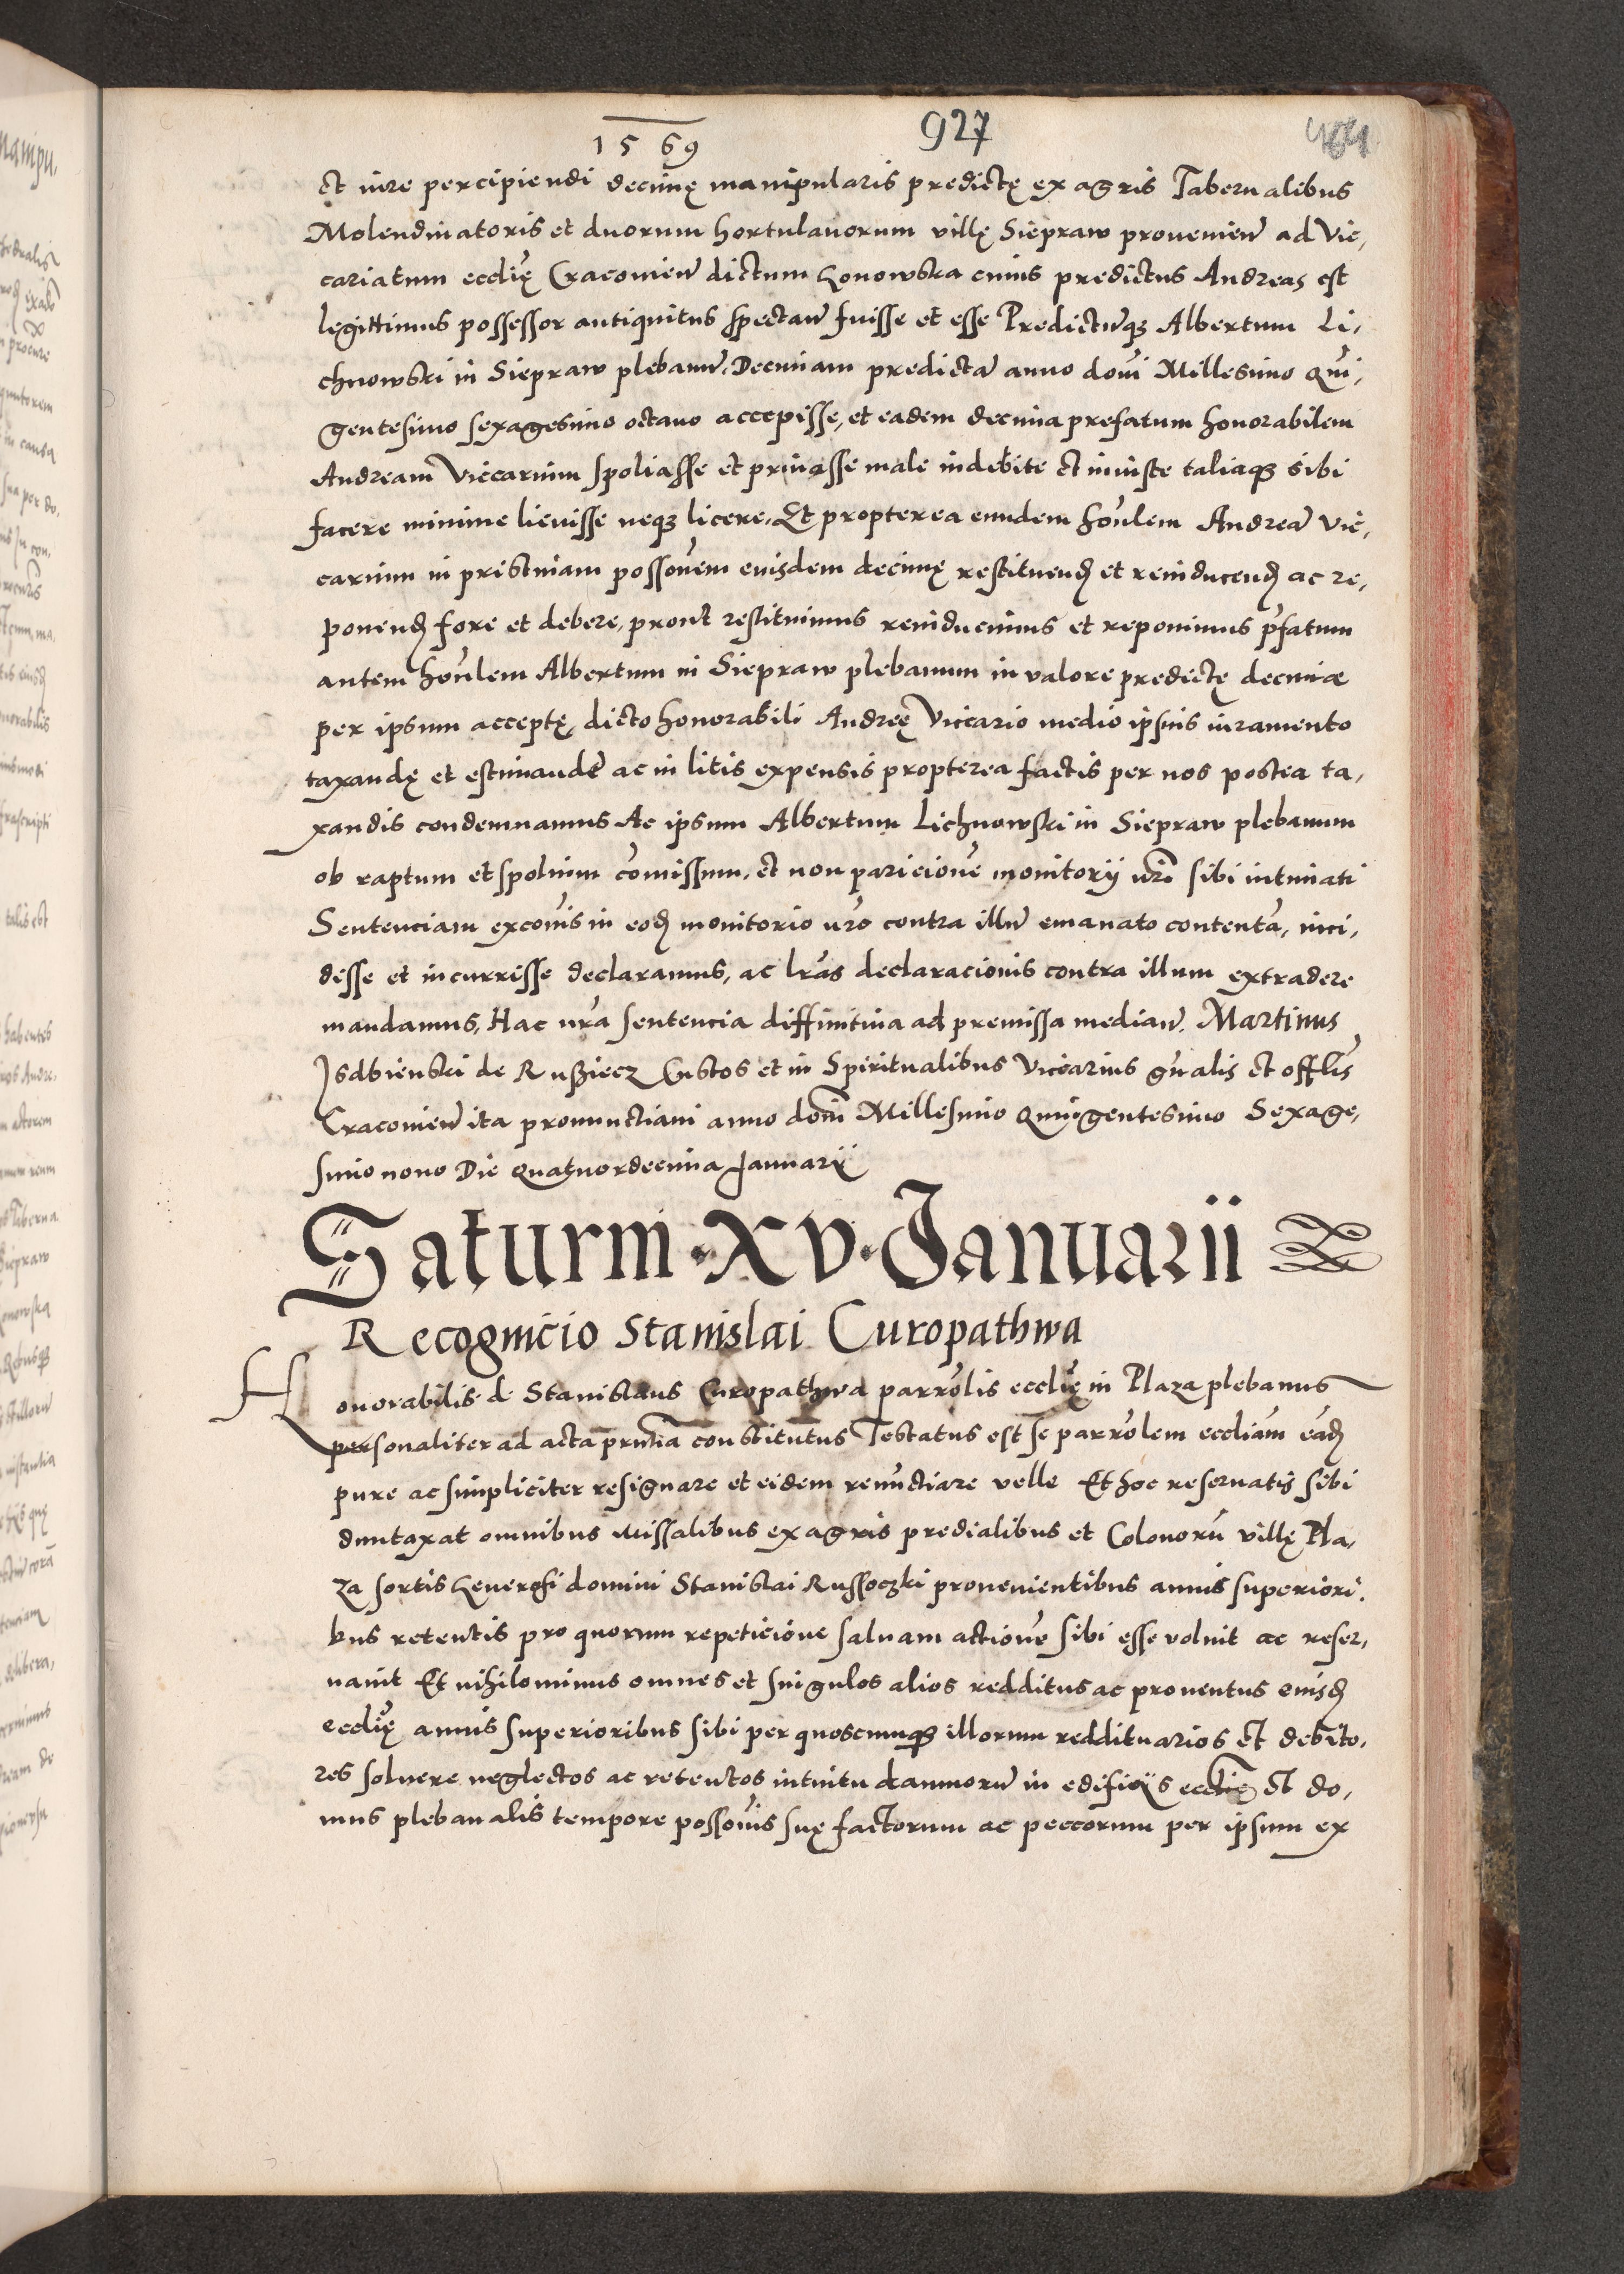 1569 927
et iure percipiendi decimę manipularis predictę ex agris Tabernalibus
Molendinatoris et duorum hortulanorum villę Siepraw prouenien̄ ad Vic,
cariatum eccl̄ię Cracovien̄ dictum Gonowska cuius predictus Andreas est
legittimus possessor antiquitus spectan̄ fuisse et esse Predictūqꝫ Albertum Li,
chnowski in Siepraw plebanū. Decimam predictā anno dom̄i Millesimo Qui,
gentesimo sexagesimo octauo accepisse, et eadem decima prefatum honorabilem
Andream Viccarium spoliasse et priuasse male indebite et iniuste taliaqꝫ sibi
facere minime licuisse neqꝫ licere. Et propterea eundem hon̄lem Andreā Vic,
carium in pristinam posson̄em euisdem decimę restituend̄ et reinducend̄ ac re,
ponend̄ fore et debere, prout restituimus reinducimus et reponimus p̄fatum
autem hon̄lem Albertum in Siepraw plebanum in valore predictę decimæ
per ipsum acceptę, dicto honorabili Andreę Viccario medio ipsius iuramento
taxandę et estimandę ac in litis expensis propterea factis per nos postea ta,
xandis condemnamus Ac ipsum Albertum Lichnowski in Siepraw plebanum
ob raptum et spolium com̄issum, et non paricion̄e monitorij nr̄i sibi intimati
Sentenciam excom̄is in eod̄ monitorio nr̄o contra illū emanato contentā, inci,
disse et incurrisse declaramus, ac lr̄as declaracionis contra illum extradere
mandamus, Hac nr̄a sentencia diffinitiua ad premissa median̄. Martinus
Isdbienski de Rusziecz Custos et in Spiritualibus Vicarius gn̄alis et offl̄is
Cracovien̄ ita pronunctiaui anno dom̄i Millesimo Quingentesimo Sexage,
simo nono Die Quatuordecima Januarij
Saturni · XV · Januarii
Recognicio Stanislai Curopathwa
Honorabilis d Stanislaus Curopathwa parrol̄is eccl̄ię in Plaza plebanus
personaliter ad acta prn̄tia constitutus Testatus est se parrol̄em eccliam̄ ead̄
pure ac simpliciter resignare et eidem renūctiare velle Et hoc reseruatis sibi
duntaxat omnibus missalibus ex agris predialibus et Colonorū villę Pla,
za sortis Generosi domini Stanislai Russoczki prouenientibus annis superiori,
bus retentis pro quorum repeticione saluam action̄e sibi esse voluit ac reser,
uauit Et nihilominus omnes et singulos alios redditus ac prouentus euisd̄
eccl̄ię annis superioribus sibi per quoscumqꝫ illorum reddituarios et debito,
res soluere neglectos ac retentos intuitu damnorū in edificijs eccl̄ię et do,
mus plebanalis tempore posson̄is suę factorum ac peccorum per ipsum ex